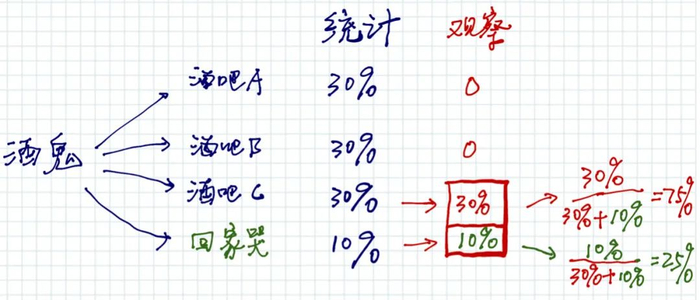 统计 观察
酒吧A 30% 0
酒鬼
酒吧B 30% 0
酒吧C 30% → 30% → 30%/(30%+10%) =75%
回家哭 10% → 10% → 10%/(30%+10%) =25%